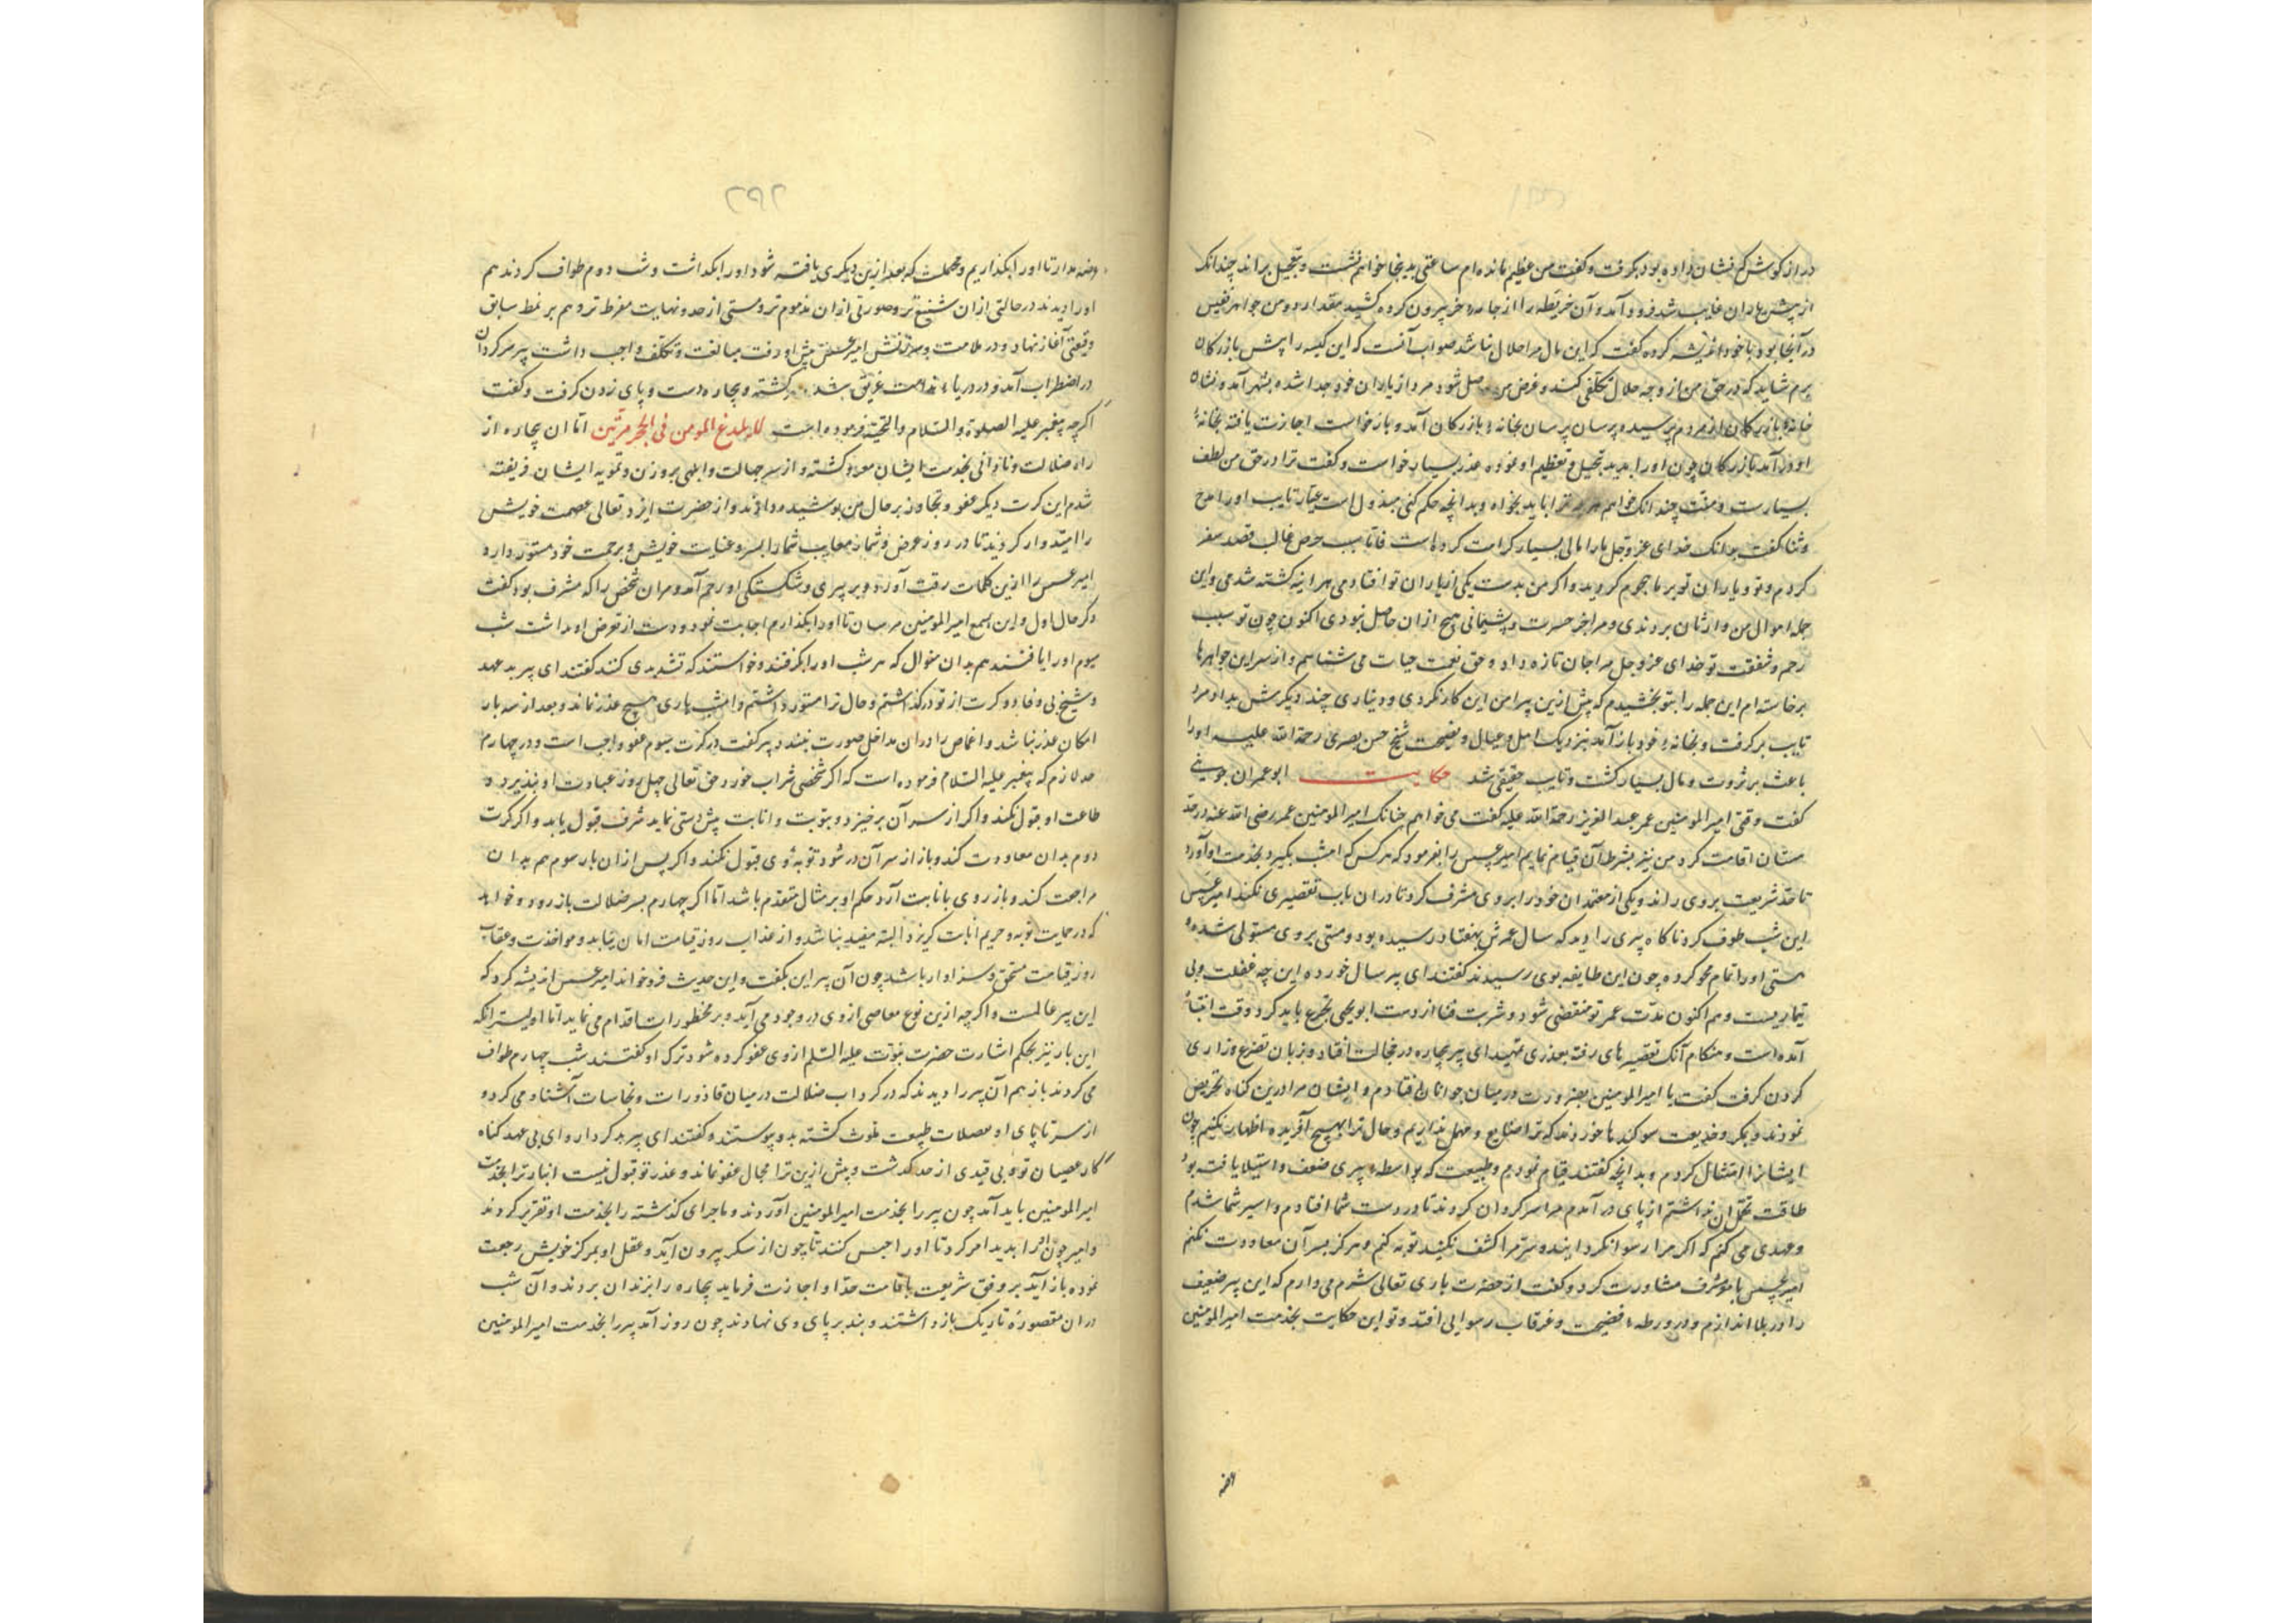 دراز کوش که نشان داده بود بکرفت و کفت من عظیم مانده ام ساعتی بدینجا خواهم نشست و بتعجیل براند چندانک
از پیش یاران غایب شد فرود آمد و آن خریطه را از جامه خر بیرون کرده کشید مقدار دو من جواهر نفیس
در آنجا بود با خود اندیشه کرده کفت که این مال مرا حلال نباشد صواب آنست که این کیسه را پیش بازرکان
برم شاید که در حق من از وجه حلال تکلفی کند و غرض من حاصل شود مرد از یاران خود جدا شده بشهر آمد و نشان
خانهٔ بازرکان از مردم پرسیده پرسان پرسان بخانهٔ بازرکان آمد و بار خواست اجازت یافته بخانهٔ
او در آمد بازرکان چون او را بدید تبجیل و تعظیم او نموده عذر بسیار خواست و کفت ترا در حق من لطف
بسیارست و منت چندانک خواهم هر چه ترا باید بخواه و بدانچه حکم کنی مبذول است عیار تایب او را مدح
و ثنا کفت بدانک خدای عز و جل ما را مالی بسیار کرامت کرده است فاما سبب حرص غالب قصد سفر
کردم و تو و یاران تو بر ما هجوم کردید و اکر من بدست یکی از یاران تو افتادمی هر اینه کشته شدمی و این
جمله اموال من وارثان بردندی و مرا جز حسرت و پشیمانی هیچ از ان حاصل نبودی اکنون چون تو سبب
رحم و شفقت تو خدای عز و جل مرا جان تازه داد و حق نعمت حیات می شناسم و از سر این جواهرها
برخاسته ام این جمله را بتو بخشیدم که پیش ازین پیرامن این کار نکردی و دیناری چند دیکرش بداد مرد
تایب برکرفت و بخانهٔ خود باز آمد بنزدیک اهل و عیال و نصیحت شیخ حسن بصری رحمة الله علیه او را
باعث بر ثروت و مال بسیار کشت و تایب حقیقی شد حکایت ابو عمران جونی
کفت وقتی امیر المومنین عمر عبد العزیز رحمة الله علیه کفت می خواهم چنانک امیر المومنین عمر رضی الله عنه در حد
مستان اقامت کرد من نیز بشرط آن قیام نمایم امیر عسس را بفرمود که هر کس که امشب بکیرد بخدمت او آورد
تا حد شریعت بر وی راند و یکی از معتمدان خود را بر وی مشرف کرد تا در ان باب تقصیری نکند امیر عسس
این شب طوف کرد ناکاه پیری را دید که سال عمرش بهفتاد رسیده بود و مستی بر وی مستولی شده
مستی او را تمام محو کرده چون این طایفه بوی رسیدند کفتند ای پیر سال خورده این چه غفلت و بی
تیماریست و هم اکنون مدت عمر تو منقضی شود و شربت فنا از دست ابو یحیی تجرع باید کرد وقت انتباه
آمده است و هنکام آنک تقصیرهای رفته بعذری تمهید ای پیر بیچاره در خجالت افتاد و زبان تضرع و زاری
کردن کرفت کفت یا امیر المومنین بضرورت در میان جوانان افتادم و ایشان مرا درین کناه تحریض
نمودند و بمکر و خدیعت سوکندها خوردند که ترا ضایع و مهمل نذاریم و حال ترا بهیچ آفریده اظهار نکنیم چون
ایشانرا امتثال کردم و بدانچه کفتند قیام نمودم و طبیعت که بواسطهٔ پیری ضعف و استیلا یافته بود
طاقت تحمل ان نداشتم از پای در آمدم مرا سرکردان کردند تا در دست شما افتادم و اسیر شما شدم
و عهدی می کنم که اکر مرا رسوا نکردانید و ستر مرا کشف نکنید توبه کنم و هرکز بسر آن معاودت نکنم
امیر عسس با مشرف مشاورت کرد و کفت از حضرت باری تعالی شرم می دارم که این پیر ضعیف
را در بلا اندازم و در ورطهٔ فضیحت و غرقاب رسوایی افتد و تو این حکایت بخدمت امیر المومنین
عرضه
عرضه مدار تا او را بکذاریم و مهملت که بعد ازین دیکری یافته شود او را بکذاشت و شب دوم طواف کردند هم
او را دیدند در حالتی از ان شنیع تر و صورتی از ان مذموم تر و مستی از حد و نهایت مفرط تر و هم بر نمط سابق
وقیعتی آغاز نهاد و در ملامت و سرزنش امیر عسس پیش او رفت مبالغت و تکلف واجب داشت پیر سرکردان
در اضطراب آمد و در دریاء ندامت غریق شد کشته و بیچاره دست و پای زدن کرفت و کفت
اکرچه پیغمبر علیه الصلوة و السلام و التحیة فرموده است لا یلدغ المومن فی الجحر مرتین اما ان بیچاره از
راه ضلالت و نادانی بخدمت ایشان معدود کشته و از سر جهالت و ابلهی بروزن و تمویه ایشان فریفته
شدم این کرت دیکر عفو و تجاوز بر حال من پوشیده دارند و از حضرت ایزد تعالی عصمت خویش
را امیدوار کردید تا در روز عرض و شمار معایب شما را بستر و عنایت خویش و برحمت خود مستور دارد
امیر عسس را ازین کلمات رقت آورد و بر پیری و شکستکی او رحم آمد و مر ان شخص را که مشرف بود کفت
ذکر حال اول و این بسمع امیر المومنین مرسان تا او را بکذارم اجابت نمود و دست از تعرض او بداشت شب
سیوم او را یافتند هم بدان منوال که هر شب او را بکرفتند و خواستند که تشدیدی کنند کفتند ای پیر بد عهد
و شیخ بی وفا دو کرت از تو درکذاشتم و حال ترا مستور داشتم و امشب باری هیچ عذر نماند و بعد از سه بار
امکان عذر نباشد و اغماض را در ان مداخل صورت نبندد پیر کفت در کرت سیوم عفو واجب است و در چهارم
حد لازم که پیغمبر علیه السلام فرموده است که اکر شخصی شراب خورد حق تعالی چهل روز عبادت او نپذیرد و
طاعت او قبول نکند و اکر از سر آن برخیزد و بتوبت و انابت پیش دستی نماید شرف قبول یابد و اکر کرت
دوم بدان معاودت کند و باز از سر آن در شود توبهٔ وی قبول نکند و اکر پس از ان بار سوم هم بدان
مراجعت کند و باز روی بانابت آرد حکم او بر مثال متقدم باشد اما اکر چهارم بسر ضلالت باز رود و خواهد
که در حمایت توبه و حریم انابت کریزد البته مفید نباشد و از عذاب روز قیامت امان نیابد و مواخذت و عقاب
روز قیامت مستحق و سزاوار باشد چون آن پیر این بکفت و این حدیث فرو خواند امیر عسس اندیشه کرد که
این پیر عالمست و اکرچه ازین نوع معاصی از وی در وجود می آید و بر محظورات اقدام می نماید اما اولیتر انکه
این بار نیز بحکم اشارت حضرت نبوت علیه السلم از وی عفو کرده شود ترک او کفتند شب چهارم طواف
می کردند باز هم آن پیر را دیدند که در کرداب ضلالت در میان قاذورات و نجاسات آشناه می کرد و
از سر تا پای او معضلات طبیعت ملوث کشته بدو پیوستند و کفتند ای پیر بد کردار و ای بی عهد کناه
کار عصیان تو و بی قیدی از حد کذشت و پیش ازین ترا مجال عفو نماند و عذر تو قبول نیست اینبار ترا بخدمت
امیر المومنین باید آمد چون پیر را بخدمت امیر المومنین آوردند و ماجرای کذشته را بخدمت او تقریر کردند
و امیر چون او را بدید امر کرد تا او را حبس کنند تا چون از سکر بیرون آید و عقل او بمرکز خویش رجعت
نموده باز آید بر وفق شریعت باقامت حد او اجازت فرماید بیچاره را بزندان بردند و آن شب
در ان مقصورهٔ تاریک باز داشتند و بند بر پای وی نهادند چون روز آمد پیر را بخدمت امیر المومنین